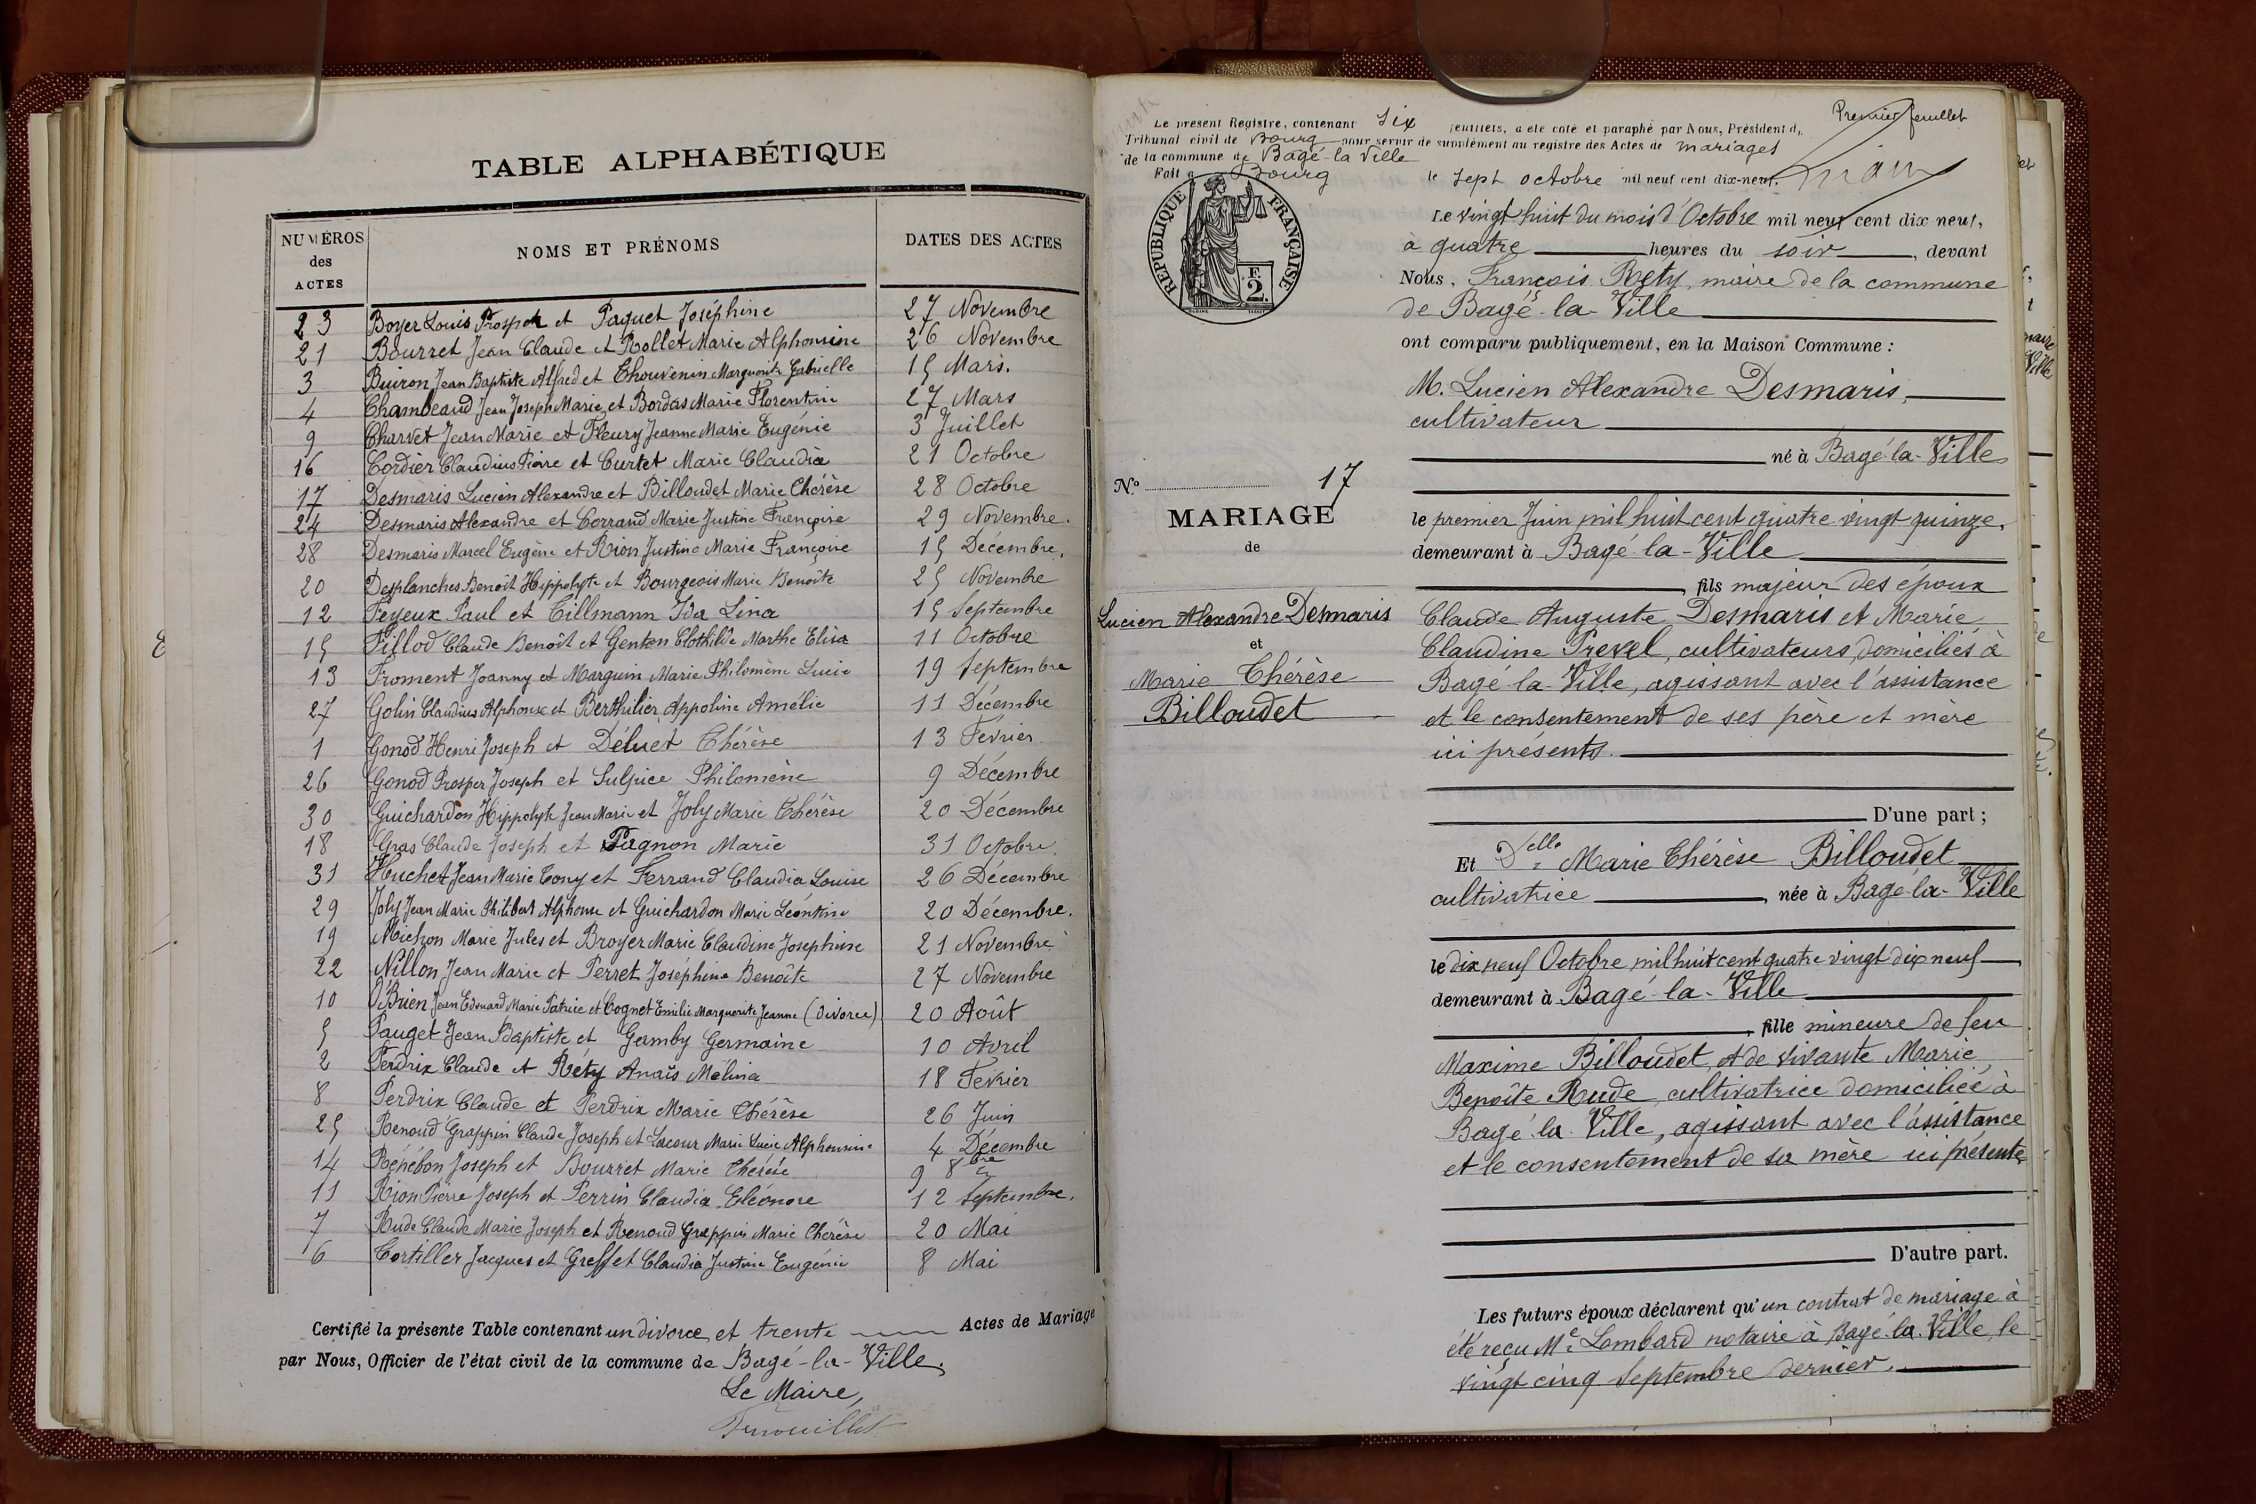 TABLE ALPHABÉTIQUE
NUMÉROS des ACTES
NOMS ET PRÉNOMS
DATES DES ACTES
23 Boyer Louis Prosper et Paquet Joséphine 27 Novembre
21 Bourret Jean Claude et Rollet Marie Alphonsine 26 Novembre
3 Buiron Jean Baptiste Alfred et Thouvenin Marguerite Gabrielle 15 Mars.
4 Chambeaud Jean Joseph Marie et Bordas Marie Florentine 27 Mars
9 Charvet Jean Marie et Fleury Jeanne Marie Eugénie 3 Juillet
16 Cordier Claudius Pierre et Curtet Marie Claudia 21 Octobre
17 Desmaris Lucien Alexandre et Billoudet Marie Thérèse 28 Octobre
24 Desmaris Alexandre et Corrand Marie Justine Françoise 29 Novembre.
28 Desmaris Marcel Eugène et Rion Justine Marie Françoise 15 Décembre.
20 Desplanches Benoit Hippolyte et Bourgeois Marie Benoîte 25 Novembre
12 Feyeux Paul et Tillmann Ida Lina 15 Septembre
15 Fillod Claude Benoit et Genton Clothilde Marthe Elisa 11 Octobre
13 Froment Joanny et Marguin Marie Philomène Lucie 19 Septembre
27 Golin Claudius Alphonse et Berthilier Appoline Amélie 11 Décembre
1 Gonod Henri Joseph et Déluet Thérèse 13 Février
26 Gonod Prosper Joseph et Sulpice Philomène 9 Décembre
30 Guichardon Hippolyte Jean Marie et Joly Marie Thérèse 20 Décembre
18 Gras Claude Joseph et Pagnon Marie 31 Octobre.
31 Huchet Jean Marie Tony et Ferrand Claudia Louise 26 Décembre
29 Joly Jean Marie Philibert Alphonse et Guichardon Marie Léontine 20 Décembre.
19 Michon Marie Jules et Broyer Marie Claudine Josephine 21 Novembre
22 Nillon Jean Marie et Perret Joséphine Benoîte 27 Novembre
10 O'Brien Jean Edouard Marie Patrice et Cognet Emilie Marguerite Jeanne (Divorce) 20 Août
5 Pauget Jean Baptiste et Gamby Germaine 10 Avril
2 Perdrix Claude et Réty Anaïs Mélina 18 Février
8 Perdrix Claude et Perdrix Marie Thérèse 26 Juin
25 Renoud Grappin Claude Joseph et Lacour Marie Lucie Alphonsine 4 Décembre
14 Répébon Joseph et Bourret Marie Thérèse 9 8bre
11 Rion Pierre Joseph et Perrin Claudia Eléonore 12 Septembre.
7 Rude Claude Marie Joseph et Renoud Grappin Marie Thérèse 20 Mai
6 Tortiller Jacques et Greffet Claudia Justine Eugénie 8 Mai
Certifié la présente Table contenant un divorce et trente Actes de Mariage
par Nous, Officier de l'état civil de la commune de Bagé-la-Ville.
Le Maire,
Premier feuillet
Le présent Registre, contenant six feuillets, a été coté et paraphé par Nous, Président d.
Tribunal civil de Bourg pour servir de supplément au registre des Actes de mariages
de la commune de Bagé-la Ville
Fait à Bourg le sept octobre mil neuf cent dix-neuf.
RÉPUBLIQUE FRANÇAISE
F.
2.
Le vingt huit du mois d'Octobre mil neuf cent dix neuf,
à quatre heures du soir, devant
Nous, François Réty, maire de la commune
de Bagé-la-Ville
ont comparu publiquement, en la Maison Commune :
M. Lucien Alexandre Desmaris,
cultivateur
né à Bagé-la-Ville
N° 17
MARIAGE
de
Lucien Alexandre Desmaris
et
Marie Thérèse
Billoudet
le premier Juin mil huit cent quatre vingt quinze,
demeurant à Bagé-la-Ville
, fils majeur des époux
Claude Auguste Desmaris et Marie
Claudine Prevel, cultivateurs domiciliés à
Bagé-la-Ville, agissant avec l'assistance
et le consentement de ses père et mère
ici présents.
D'une part ;
Et Delle Marie Thérèse Billoudet
cultivatrice, née à Bagé-la-Ville
le dix neuf Octobre mil huit cent quatre vingt dix neuf
demeurant à Bagé-la-Ville
, fille mineure de feu
Maxime Billoudet, et de vivante Marie
Benoîte Rude, cultivatrice domiciliée à
Bagé-la-Ville, agissant avec l'assistance
et le consentement de sa mère ici présente
D'autre part.
Les futurs époux déclarent qu'un contrat de mariage à
été reçu Me Lombard notaire à Bagé-la-Ville, le
vingt cinq Septembre dernier.